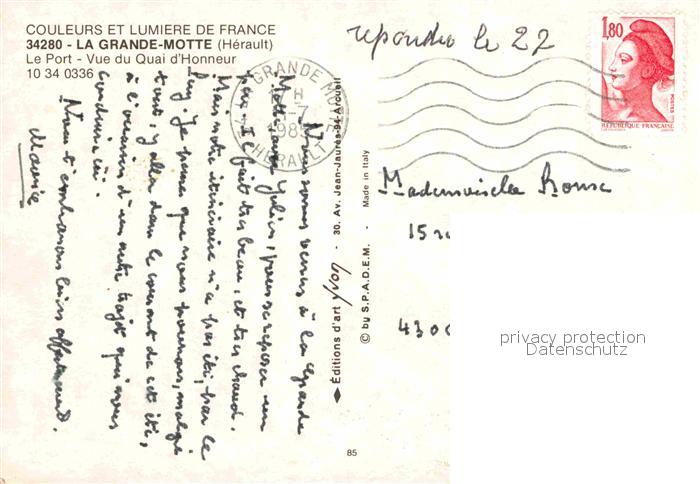 COULEURS ET LUMIERE DE FRANCE
34280 - LA GRANDE-MOTTE (Hérault)
Le Port - Vue du Quai d'Honneur
10 34 0336
repondre le 22
1,80
POSTES
REPUBLIQUE FRANÇAISE
LA GRANDE MOTTE
HERAULT
Nous sommes venus à la Grande
Motte avec pour se reposer un
peu. Il fait très beau, et très chaud.
Mais notre itinéraire n'a pas été, par le
Puy. Je pense que nous pourrons, malgré
tout, y aller dans le courant de cet été,
à l'occasion d'un autre trajet qui nous
conduira ici.
Nous t'embrassons bien affectueusement.
Maurice
Editions d'art yvon - 30, Av. Jean-Jaurès-94 Arcueil
© by S.P.A.D.E.M. - Made in Italy
85
Mademoiselle
15
430
privacy protection
Datenschutz